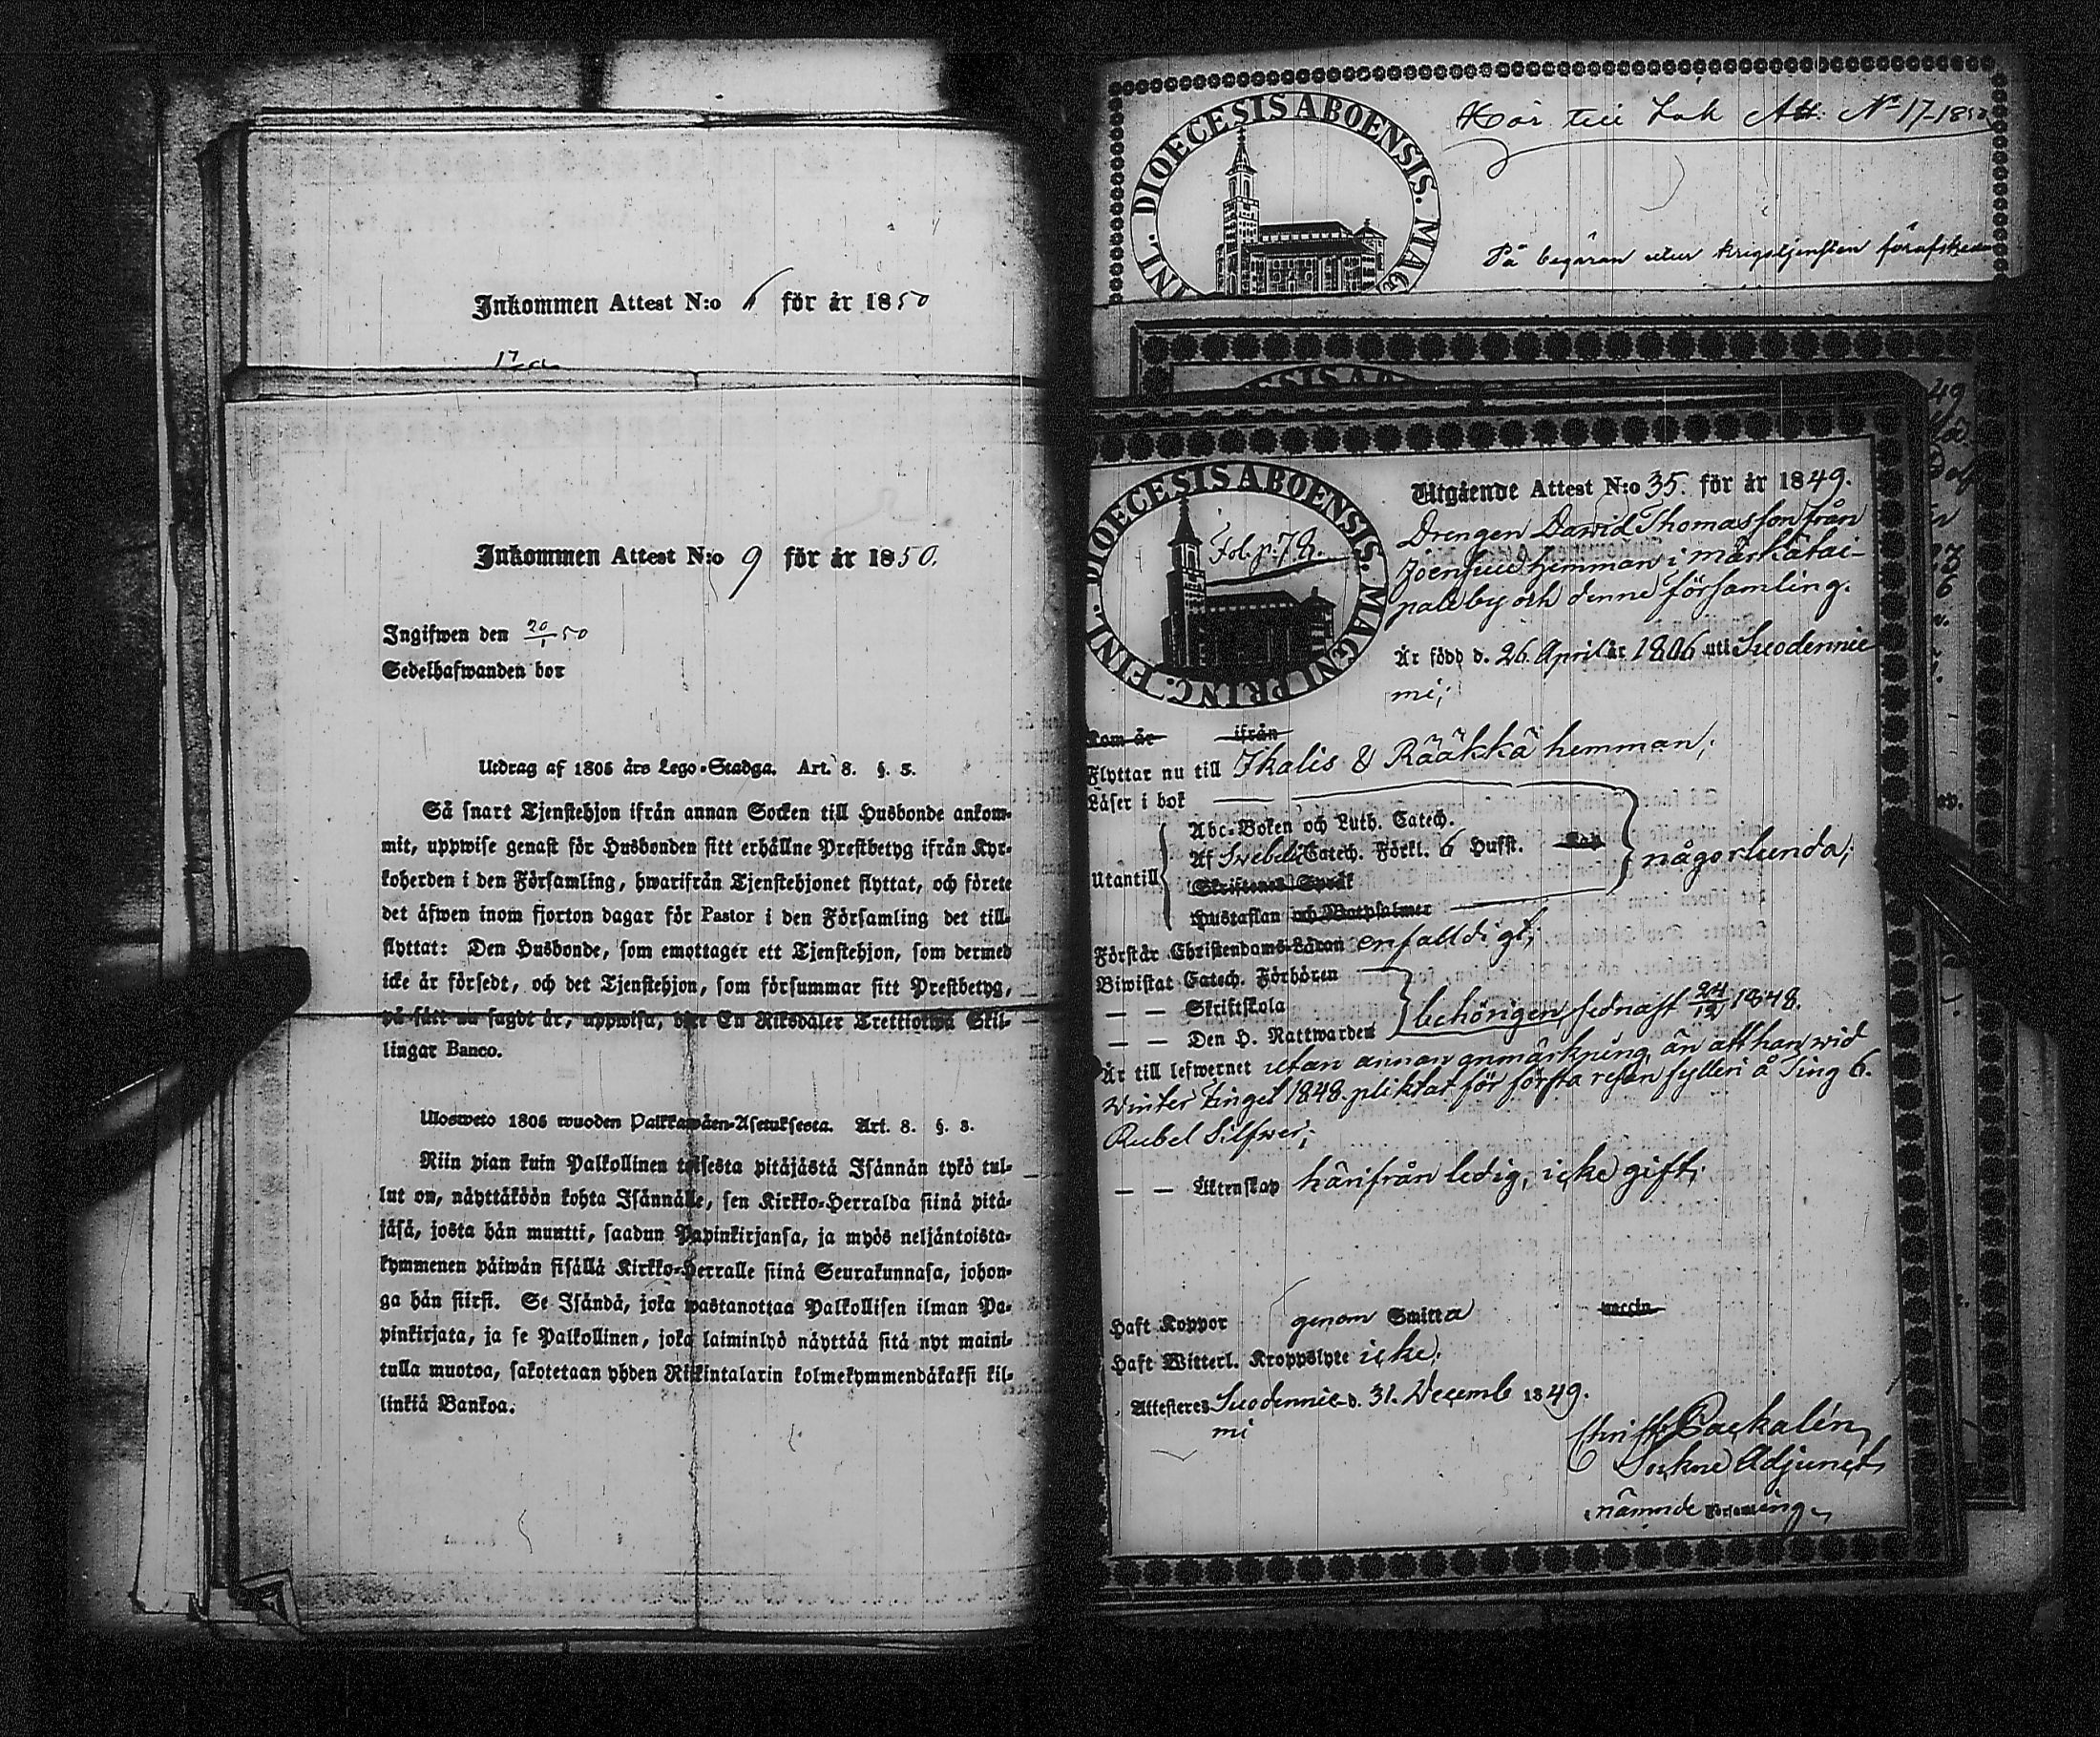 Inkommen Attest N:o 6 för år 1850
Inkommen Attest N:o 9 för år 1850.
Ingifwen den 20/1 50
Sedelhafwanden bor
Utdrag af 1805 års Lego-Stadga. Art. 8. §. 3.
Så snart Tjenstehjon ifrån annan Socken till Husbonde ankom-
mit, uppwise genast för Husbonden sitt erhållne Prestbetyg ifrån Kyr-
koherden i den Församling, hwarifrån Tjenstehjonet flyttat, och förete
det äfwen inom fjorton dagar för Pastor i den Församling det till-
flyttat: Den Husbonde, som emottager ett Tjenstehjon, som dermed
icke är försedt, och det Tjenstehjon, som försummar sitt Prestbetyg,
på sätt nu sagdt är, uppwisa, böte En Riksdaler Trettiotwå Skil-
lingar Banco.
Ulosweto 1805 wuoden Palkkawäen-Asetuksesta. Art. 8. §. 3.
Niin pian kuin Palkollinen toisesta pitäjästä Isännän tykö tul-
lut on, näyttäköön kohta Isännälle, sen Kirkko-Herralda siinä pitä-
jäsä, josta hän muutti, saadun Papinkirjansa, ja myös neljäntoista-
kymmenen päiwän sisällä Kirkko-Herralle siinä Seurakunnasa, johon-
ga hän siirsi. Se Isändä, joka wastanottaa Palkollisen ilman Pa-
pinkirjata, ja se Palkollinen, joka laiminlyö näyttää sitä nyt maini-
tulla muotoa, sakotetaan yhden Riikintalarin kolmekymmendäkaksi kil-
linkiä Bankoa.
DIOECESIS ABOENSIS. MAG
INL.
Hör till Att. No 17-1850
På begäran utur krigstjensten förafskeda
DIOECESIS ABOENSIS. MAGNI PRINC. FINL.
Fol. p. 78.
Utgående Attest N:o 35. för år 1849.
Drengen Dawid Thomasson från
Joensuu hemman i Märkätai-
pale by och denne församling.
Är född d. 26. April år 1806 uti Suodennie
mi;
Kom år ifrån
Flyttar nu till Ikalis & Rääkkä hemman;
Läser i bok
Utantill
Abc-Boken och Luth. Catech.
Af Swebelii Catech. Förkl. 6 Hufst. Kap
Skriftenes Språk
Hustaflan och Botpsalmer
någorlunda;
Förstår Christendoms-Läran enfalldigt;
Biwistat Catech. Förhören
— — Skriftskola
— — Den H. Nattwarden
behörigen, sednast 24/12 1848.
Är till lefwernet utan annan anmärkning, än att han wid
Winter Tinget 1848. pliktat för första resan fylleri å Ting 6.
Rubel Silfwer;
— — Äktenskap härifrån ledig, icke gift;
Haft Koppor genom Smitta vaccin
Haft Witterl. Kroppslyte icke;
Attesteres Suodennie- d. 31. Decemb 1849.
mi
Christ. Packalén
Sockne Adjunct
i nämnde Församling.